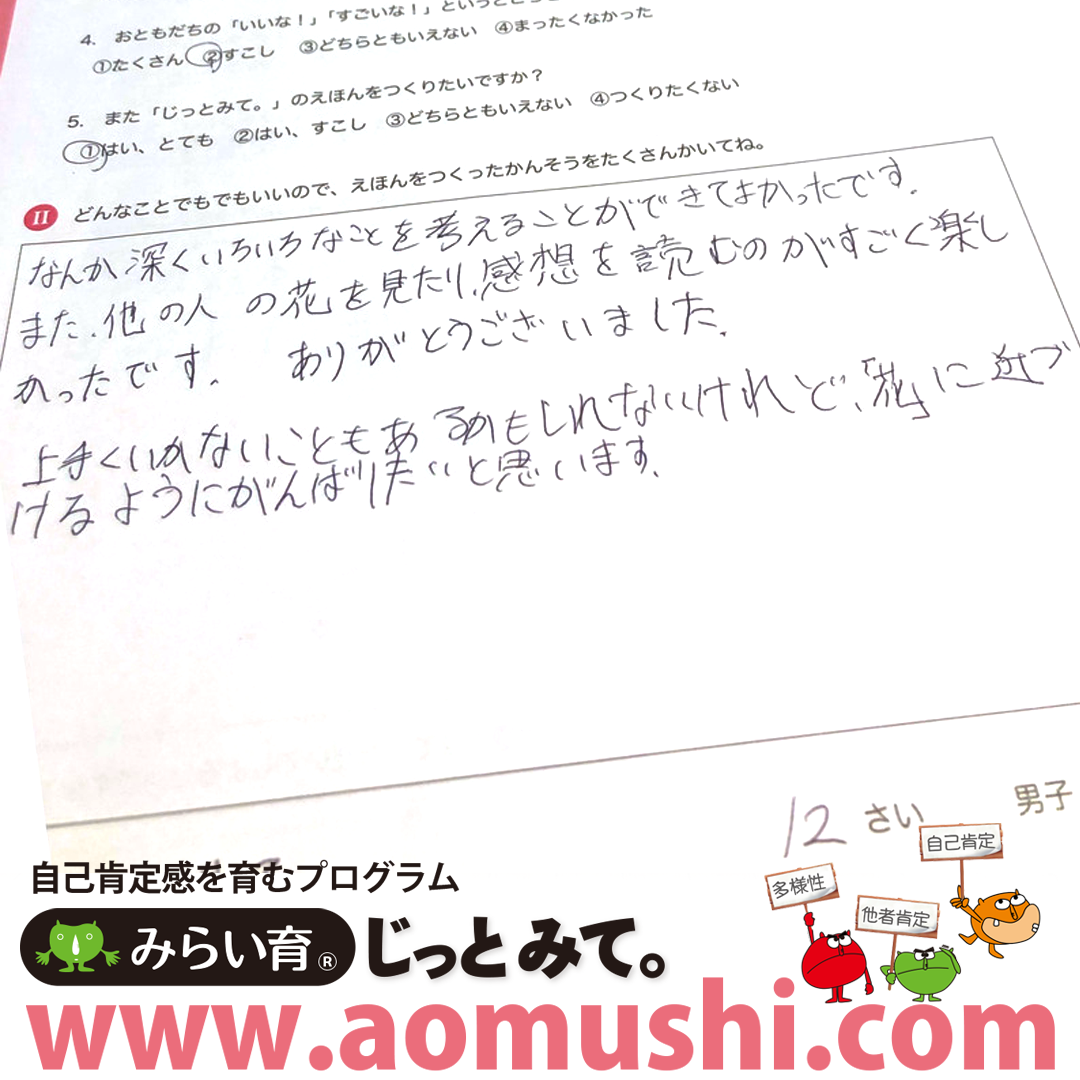 4. おともだちの「いいな！」「すごいな！」
①たくさん ②すこし ③どちらともいえない ④まったくなかった
5. また「じっとみて。」のえほんをつくりたいですか？
①はい、とても ②はい、すこし ③どちらともいえない ④つくりたくない
II どんなことでもでもいいので、えほんをつくったかんそうをたくさんかいてね。
なんか深くいろいろなことを考えることができてよかったです.
また、他の人の花を見たり、感想を読むのがすごく楽し
かったです. ありがとうございました.
上手くいかないこともあるかもしれないけれど、「花」に近づ
けるようにがんばりたいと思います.
12 さい 男子
自己肯定感を育むプログラム
みらい育® じっとみて。
多様性
他者肯定
自己肯定
www.aomushi.com